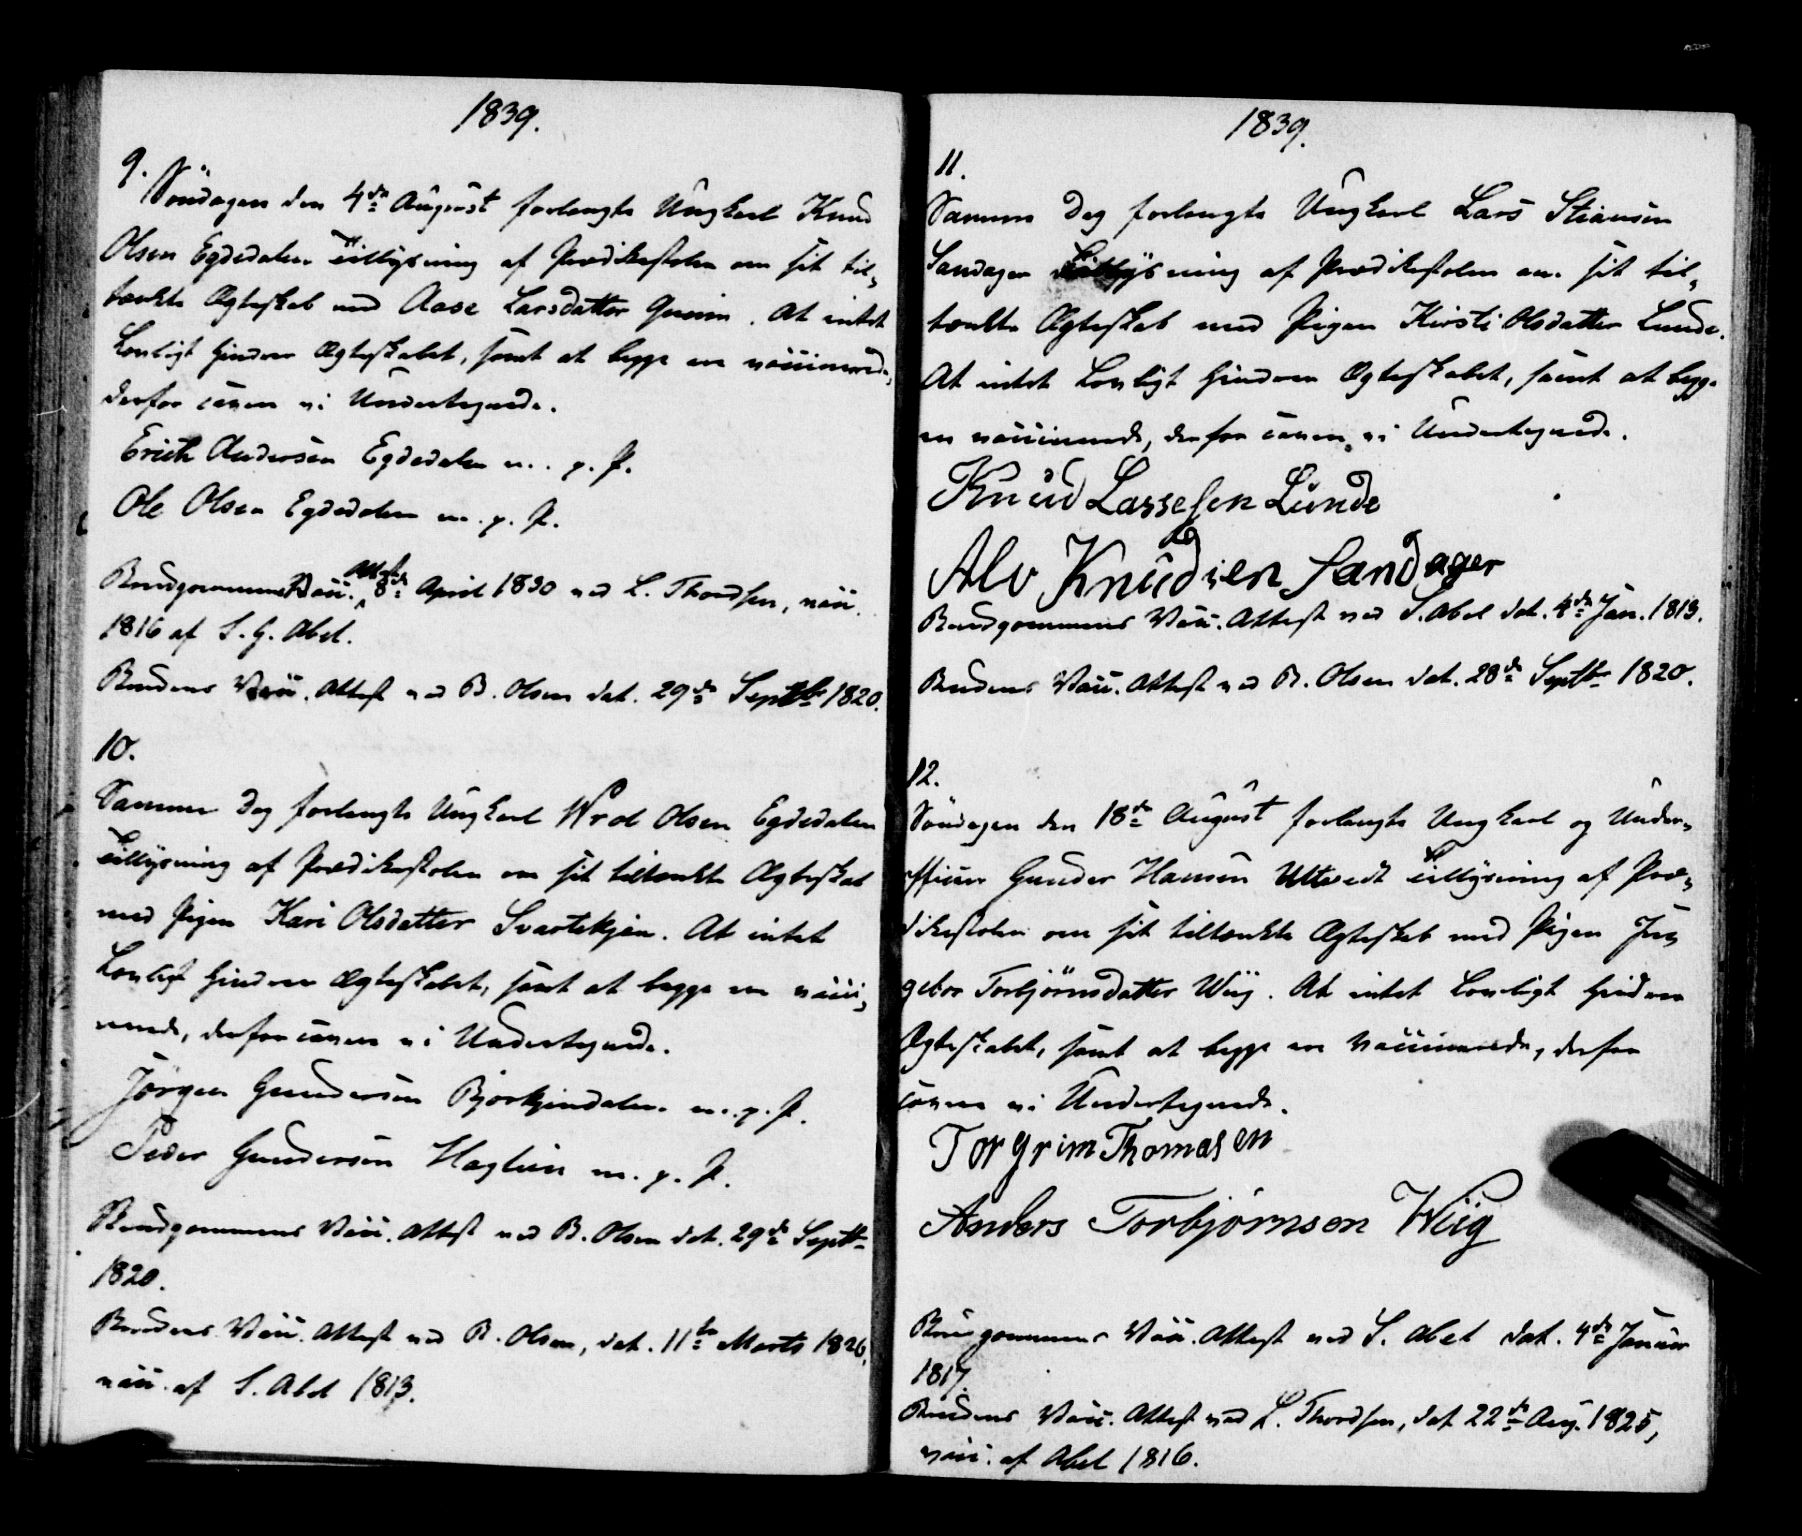 1839.
9.
Søndagen den 4de August forlangte Ungkarl Knud
Olsen Egdedalen Tillysning af Prædikestolen om sit til-
tænkte Ægteskab med Aase Larsdatter. At intet
Lovligt hindrer Ægteskabet, samt at begge ere vaccinerede,
derfor cavere vi Undertegnede.
Erich Andersen Egdedalen m. p. P.
Ole Olsen Egdedalen m. p. P.
Brudgommens Vacc. Attest 8de April 1830 ved L. Thordsen, vacc.
1816 af S. G. Abel.
Brudens Vacc. Attest ved B. Olsen dat. 29de Septbr 1820.
10.
Samme Dag forlangte Ungkarl Wrol Olsen Egdedalen
Tillysning af Prædikestolen om sit tiltænkte Ægteskab
med Pigen Kari Olsdatter Svartekjen. At intet
Lovligt hindrer Ægteskabet, samt at begge ere vacci-
nerede, derfor cavere vi Undertegnede.
Jörgen Gundersen Bjorkjendalen m. p. P.
Peder Gundersen Haglien m. p. P.
Brudgommens Vacc. Attest ved B. Olsen dat. 29de Septbr
1820.
Brudens Vacc. Attest ved B. Olsen, dat. 11te Marts 1826,
vacc. af S. Abel 1813.
1839.
11.
Samme Dag forlangte Ungkarl Lars Stiansen
Sandager Tillysning af Prædikestolen om sit til-
tænkte Ægteskab med Pigen Kirsti Olsdatter Lunde.
At intet Lovligt hindrer Ægteskabet, samt at begge
ere vaccinerede, derfor cavere vi Undertegnede.
Knud Lassesen Lunde
Alv Knudsen Sandager
Brudgommens Vacc. Attest ved S. Abel dat. 4de Jan. 1813.
Brudens Vacc. Attest ved B. Olsen dat. 28de Septbr 1820.
12.
Søndagen den 18de August forlangte Ungkarl og Under-
officier Gunder Hansen Ultvedt Tillysning af Præ-
dikestolen om sit tiltænkte Ægteskab med Pigen In-
gebor Torbjörnsdatter Wiig. At intet Lovligt hindrer
Ægteskabet, samt at begge ere vaccinerede, derfor
cavere vi Undertegnede.
Torgrim Thomasen
Anders Torbjörnsen Wiig
Brudgommens Vacc. Attest ved S. Abel dat. 4de Januar
1817.
Brudens Vacc. Attest ved L. Thordsen, dat 22de Aug. 1825,
vacc. af Abel 1816.